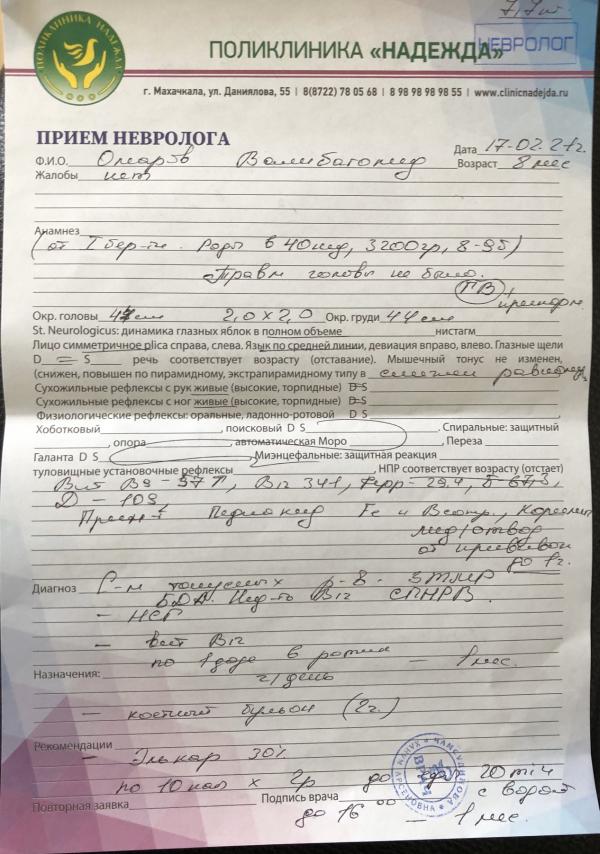 7,7кг.
ПОЛИКЛИНИКА НАДЕЖДА
НЕВРОЛОГ
ПОЛИКЛИНИКА «НАДЕЖДА»
г. Махачкала, ул. Даниялова, 55 | 8(8722) 78 05 68 | 8 98 98 98 98 55 | www.clinicnadejda.ru
ПРИЕМ НЕВРОЛОГА
Дата 17-02.21г.
Ф.И.О. Омаров Возраст 8 мес
Жалобы нет
Анамнез
(от I бер-ти. Роды в 40нед, 3200гр, 8-9б)
Травм головы не было.
ГВ
Окр. головы см 2,0x2,0 Окр. груди 44 см
St. Neurologicus: динамика глазных яблок в полном объеме нистагм
Лицо симметричное plica справа, слева. Язык по средней линии, девиация вправо, влево. Глазные щели
D = S речь соответствует возрасту (отставание). Мышечный тонус не изменен,
(снижен, повышен по пирамидному, экстрапирамидному типу в
Сухожильные рефлексы с рук живые (высокие, торпидные) D S
Сухожильные рефлексы с ног живые (высокие, торпидные) D S
Физиологические рефлексы: оральные, ладонно-ротовой D S
Хоботковый , поисковый D S . Спиральные: защитный
, опора , автоматическая Моро . Переза
Галанта D S Миэнцефальные: защитная реакция
туловищные установочные рефлексы , НПР соответствует возрасту (отстает)
Вит B9 - , B12 341, Ферр - 29,4,
Д - 109,
Fe и
мед/отвод
от прививок
до 1г.
Диагноз С-м тонусных р-в. ЗТМР
B12
- НСГ
- вит B12
по 1 дозе в ротик - 1 мес.
Назначения: 1/день
- костный бульон
Рекомендации
- Элькар 30%
по 10 кап x 2р до еды 20 min
с водой
Повторная заявка Подпись врача
до 16⁰⁰ - 1 мес.